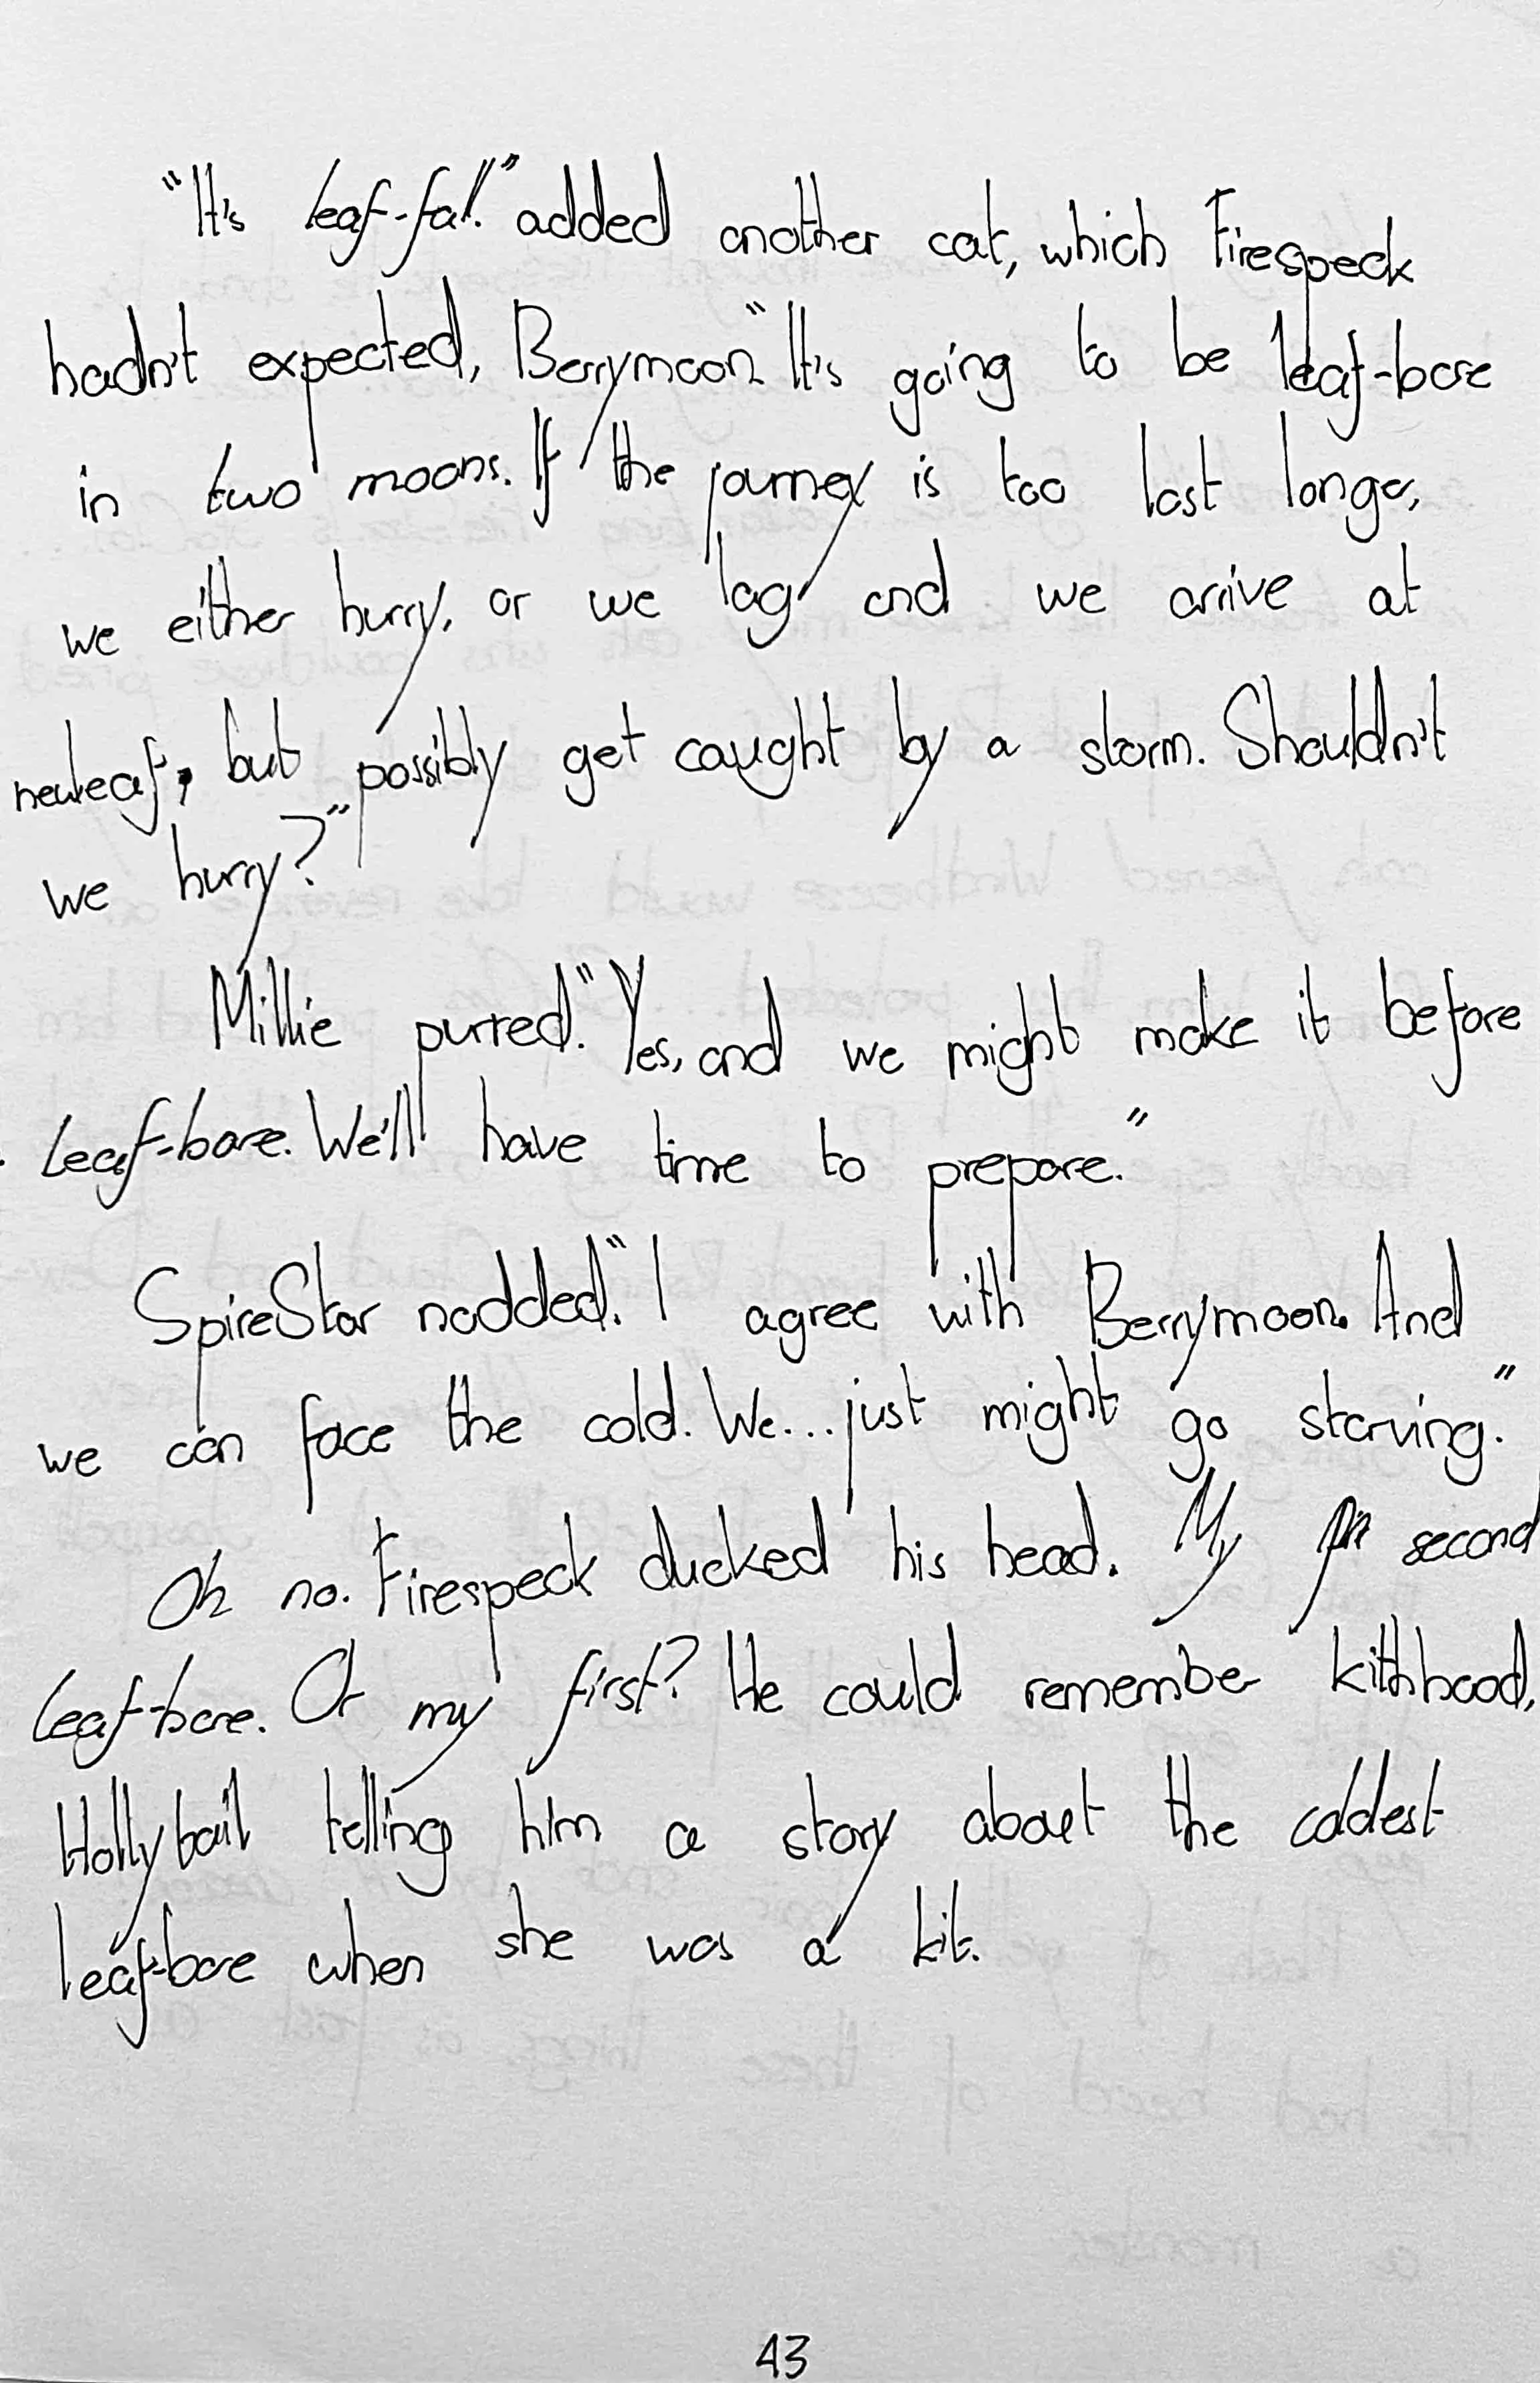 "It's leaf-fall" added another cat, which Firespeck
hadn't expected, Berrymoon. "It's going to be leaf-bare
in two moons. If the journey is too last longer,
we either hurry, or we lag and we arrive at
newleaf, but possibly get caught by a storm. Shouldn't
we hurry?"
Millie purred. "Yes, and we might make it before
Leaf-bare. We'll have time to prepare."
SpireStar nodded. "I agree with Berrymoon. And
we can face the cold. We... just might go starving."
Oh no. Firespeck ducked his head. My second
leaf-bare. Or my first? He could remember kithhood,
Hollybail telling him a story about the coldest
leaf-bare when she was a kit.
43